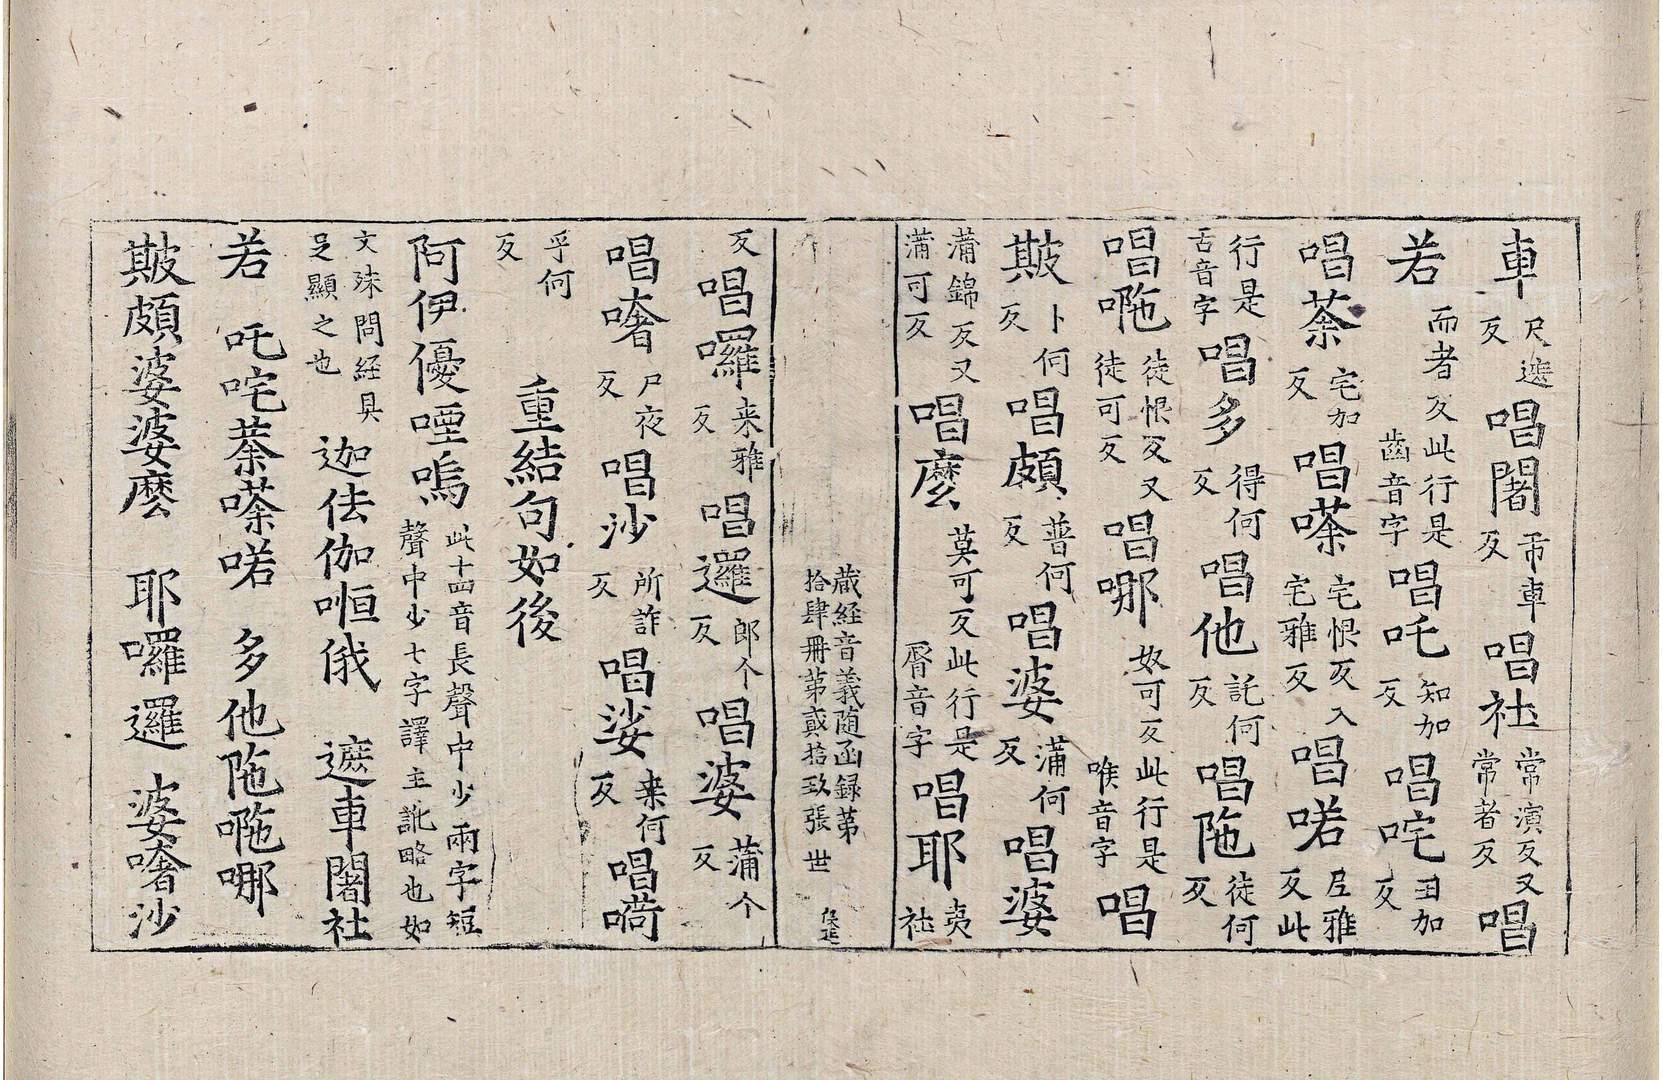 車尺遮反唱闍市車反唱社常演反又常者反唱
若而者反此行是齒音字唱吒知加反唱咤丑加反
唱荼宅加反唱㗚宅恨反又宅雅反唱喏尼雅反此
行是舌音字唱多得何反唱他託何反唱陁徒何反
唱㖡徒恨反又徒可反唱哪奴可反此行是喉音字唱
䟦卜何反唱頗普何反唱婆蒲何反唱婆
蒲錦反又蒲可反唱麼莫可反此行是脣音字唱耶夷
藏経音義随函録第
拾肆冊第貳拾玖張 世
反唱囉来雅反唱邏郎个反唱婆蒲个反
唱奢尸夜反唱沙所詐反唱娑来何反唱
乎何反
重結句如後
阿伊優㖶嗚此十四音長聲中少兩字短聲中少七字譯主訛略也如
文殊問経具足顯之也 迦佉伽㗌俄 遮車闍社
若 吒咤荼㗚喏 多他陁㖡哪
䟦頗婆婆麼 耶囉邏 婆奢沙